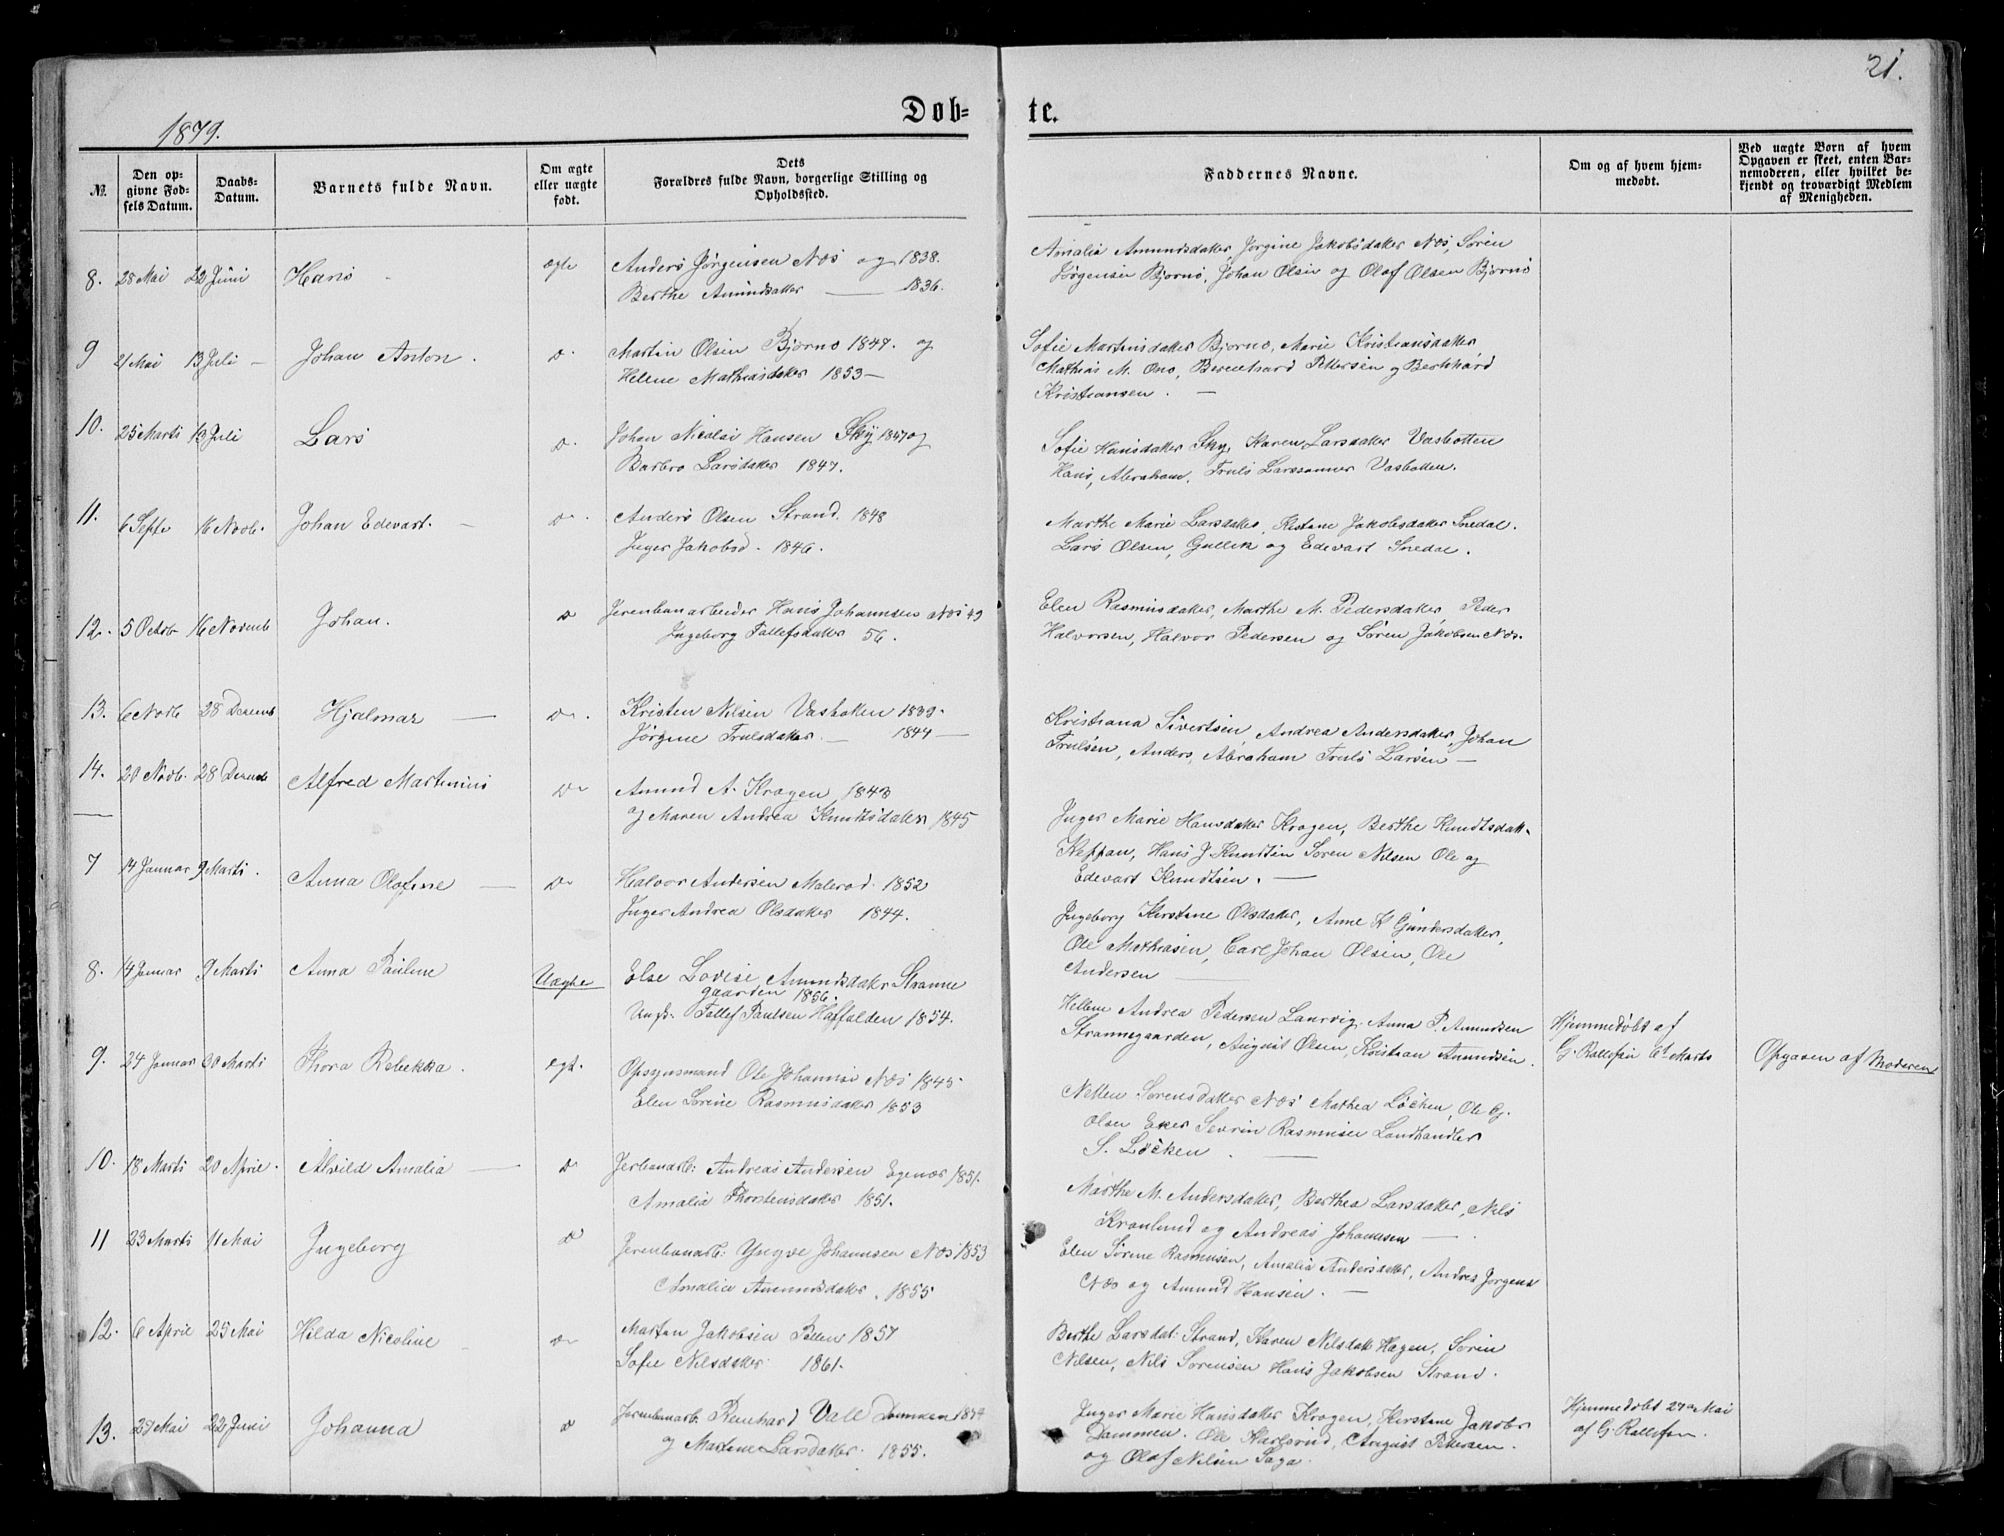 21.
Døb=
te.
1879.
№.
Den op-
givne Fød-
sels Datum.
Daabs-
Datum.
Barnets fulde Navn.
Om ægte
eller uægte
født.
Dets
Forældres fulde Navn, borgerlige Stilling og
Opholdssted.
Faddernes Navne.
Om og af hvem hjem-
medøbt.
Ved uægte Børn af hvem
Opgaven er skeet, enten Bar-
nemoderen, eller hvilket be-
kjendt og troværdigt Medlem
af Menigheden.
8. 28 Mai 22 Juni Hans ægte
Anders Jørgensen Næs og 1838.
Berthe Amundsdatter 1836.
Amalia Amundsdatter, Jørgine Jakobsdatter Næs, Søren
Jørgensen Bjørnø, Johan Olsen og Olaf Olsen Bjørnø
9 21 Mai 13 Juli Johan Anton.
Martin Olsen Bjørnø 1847. og
Helene Mathiasdatter 1853
Sofie Martinsdatter Bjørnø, Marie Kristiansdatter
Mathias M. Ono, Berenhard Pettersen og Berhhard
Kristiansen.
10. 25 Marts 13 Juli Lars
Johan Nicolai Hansen Sky 1847 og
Barbro Larsdatter 1847.
Sofie Hansdatter Sky, Karen Larsdatter Vasbotten
Hans, Abraham, Truls Larssønner Vasbotten.
11. 6 Septe 16 Novb. Johan Edevart.
Anders Olsen Strand. 1848
Inger Jakobsd. 1846.
Marthe Marie Larsdatter, Kirstene Jakobsdatter Snedal.
Lars Olsen, Gullik og Edevart Snedal.
12. 5 Octob 16 Novemb Johan.
Jerenbanarbeider Hans Johannsen Næs 49
Ingeborg Tallefsdatter 56.
Elen Rasmusdatter, Marthe M. Pedersdatter, Peder
Halvorsen, Halvor Pedersen og Søren Jakobsen Næs.
13. 6 Novb 28 Decemb Hjalmar
Kristen Nilsen Vasbotten 1839.
Jørgine Trulsdatter 1844
Kristiana Sivertsen, Andrea Andersdatter, Johan
Trulsen, Anders, Abraham Truls Larsen
14. 20 Novb. 28 Decemb Alfred Martinius
Amund A. Kragen 1843
og Maren Andrea Knudtsdatter 1845
Inger Marie Hansdatter Kragen, Berthe Knudtsdatt.
Keppan, Hans J Knudtsen Søren Nilsen Ole og
Edevart Knudtsen.
7 14 Januar 9 Marts. Anna Olofine
Halvor Andersen Malerød. 1852
Inger Andrea Olsdatter 1844.
Ingeborg Kirstene Olsdatter, Anne K Gundersdatter,
Ole Mathiasen, Carl Johan Olsen, Ole
Andersen
8. 14 Januar 9 Marts Anna Pauline Uægte
Else Lovise Amundsdatter Stranne
gaarden 1856.
Ungk. Tallef Paulsen Haffalden 1854.
Hellene Andrea Pedersen Laurvig, Anna P. Amundsen
Strannegaarden, August Olsen, Kristian Amundsen.
Hjemmedøbt af
G. Rallefsen 6t Marts
Opgaven af Moderen
9. 24 Januar 20 Marts Thora Rebekka. egt.
Opsynsmand Ole Johannse Næs 1845.
Elen Sørine Rasmusdatter 1853
Nellen Sørensdatter Næs Mathea Løcken, Ole G.
Olsen Eker Sevrin Rasmusen Landhandler
S. Løcken.
10. 18 Marts 20 April. Alvild Amalia
Jerbanarb: Andreas Andersen Egenæs 1851.
Amalia Thorstensdatter 1851.
Marthe M. Andersdatter, Berthea Larsdatter, Nils
Kronlund og Andreas Johannsen
11 23 Marts 11 Mai Ingeborg
Jerenbanarb: Yngve Johannsen Næs 1853
Amalia Amundsdatter, 1855
Elen Sørine Rasmusen, Amalia Andersdatter, Andres Jørgens
Næs og Amund Hansen.
12. 6 April 25 Mai Hilda Nicoline
Martin Jakobsen Pollen 1857
Sofie Nilsdatter 1861.
Berthe Larsdat: Strand, Karen Nilsdatt Hagen, Søren
Nilsen, Nils Sørensen Hans Jakobsen Strand.
13. 27 Mai 22 Juni Johanna
Jerenbanarb Renhard Vall Dammen
og Martine Larsdatter. 1855.
Inger Marie Hansdatter Kragen, Kirstene Jakobs
Dammen. Ole Karlsrud, August Petersen.
og Olaf Nilsen Saga.
Hjemmedøbt 27de Mai
af G. Rallefsen.